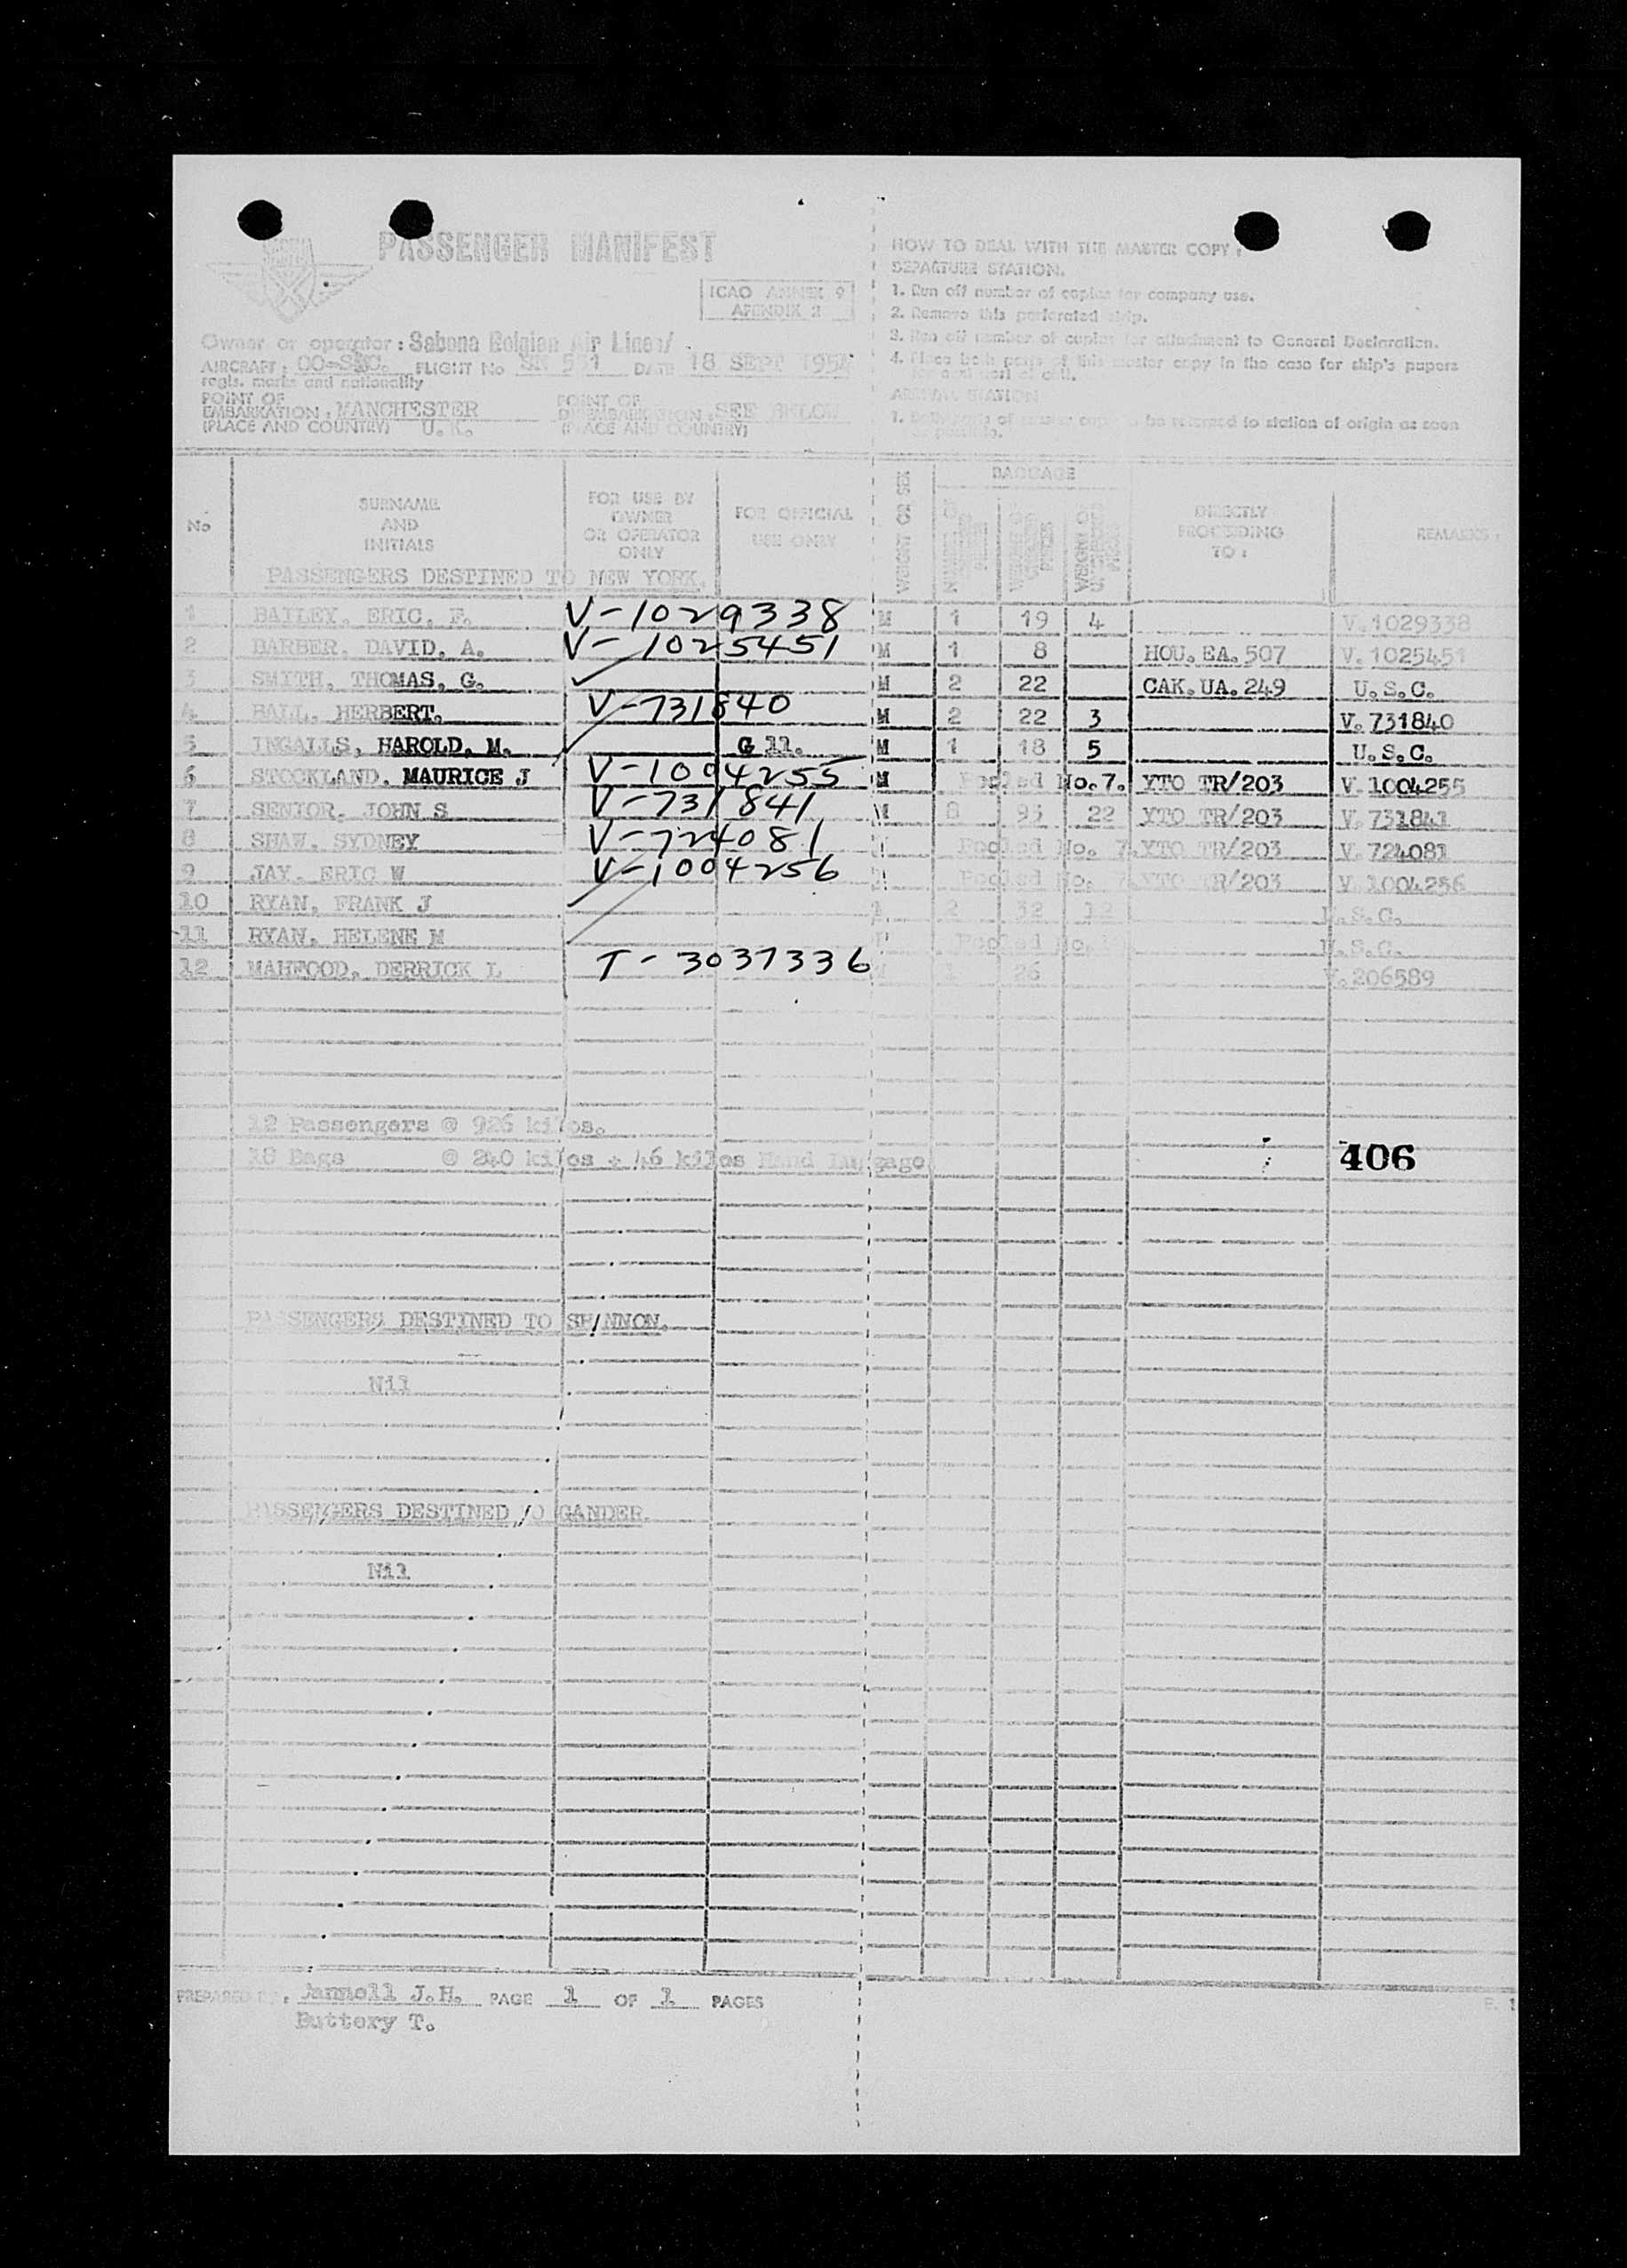 PASSENGER MANIFEST
ICAO ANNEX 9
APENDIX 2
Owner or operator: Sabena Belgian Air Lines/
AIRCRAFT: FLIGHT No SN 551 DATE 18 SEPT 195
regis. marks and nationality
POINT OF EMBARKATION: MANCHESTER POINT OF DISEMBARKATION: SEE BELOW
(PLACE AND COUNTRY) U.K. (PLACE AND COUNTRY)
HOW TO DEAL WITH THE MASTER COPY:
DEPARTURE STATION.
1. Run off number of copies for company use.
2. Remove this perforated strip.
3. Run off number of copies for attachment to General Declaration.
4. Place both parts of this master copy in the case for ship's papers
ARRIVAL STATION
1. of master copy to be returned to station of origin as soon
as possible.
No SURNAME AND INITIALS FOR USE BY OWNER OR OPERATOR ONLY FOR OFFICIAL USE ONLY WEIGHT OR SEX BAGGAGE DIRECTLY PROCEEDING TO: REMARKS:
PASSENGERS DESTINED TO NEW YORK.
1 BAILEY, ERIC, F. V-1029338 M 1 19 4 V.1029338
2 BARBER, DAVID, A. V-1025451 M 1 8 HOU.EA.507 V.1025451
3 SMITH, THOMAS, G. M 2 22 CAK.UA.249 U.S.C.
4 BALL, HERBERT. V-731840 M 2 22 3 V.731840
5 INGALLS, HAROLD, M. G 11. M 1 18 5 U.S.C.
6 STOCKLAND, MAURICE J V-1004255 M Pooled No.7. YTO TR/203 V.1004255
7 SENIOR, JOHN S V-731841 M 8 93 22 YTO TR/203 V.731841
8 SHAW, SYDNEY V-724081 Pooled No. 7. YTO TR/203 V.724081
9 JAY, ERIC W V-1004256 Pooled No. 7. YTO TR/203 V.1004256
10 RYAN, FRANK J 2 32 12 U.S.C.
11 RYAN, HELENE M F Pooled No. U.S.C.
12 MAHFOOD, DERRICK L T-3037336 M 26 V.206589
12 Passengers @ 926 kilos.
18 Bags @ 240 kilos + 46 kilos Hand luggage
406
PASSENGERS DESTINED TO SHANNON.
Nil
PASSENGERS DESTINED TO GANDER.
Nil
PREPARED BY: J.H. PAGE 1 OF 1 PAGES
Buttery T.